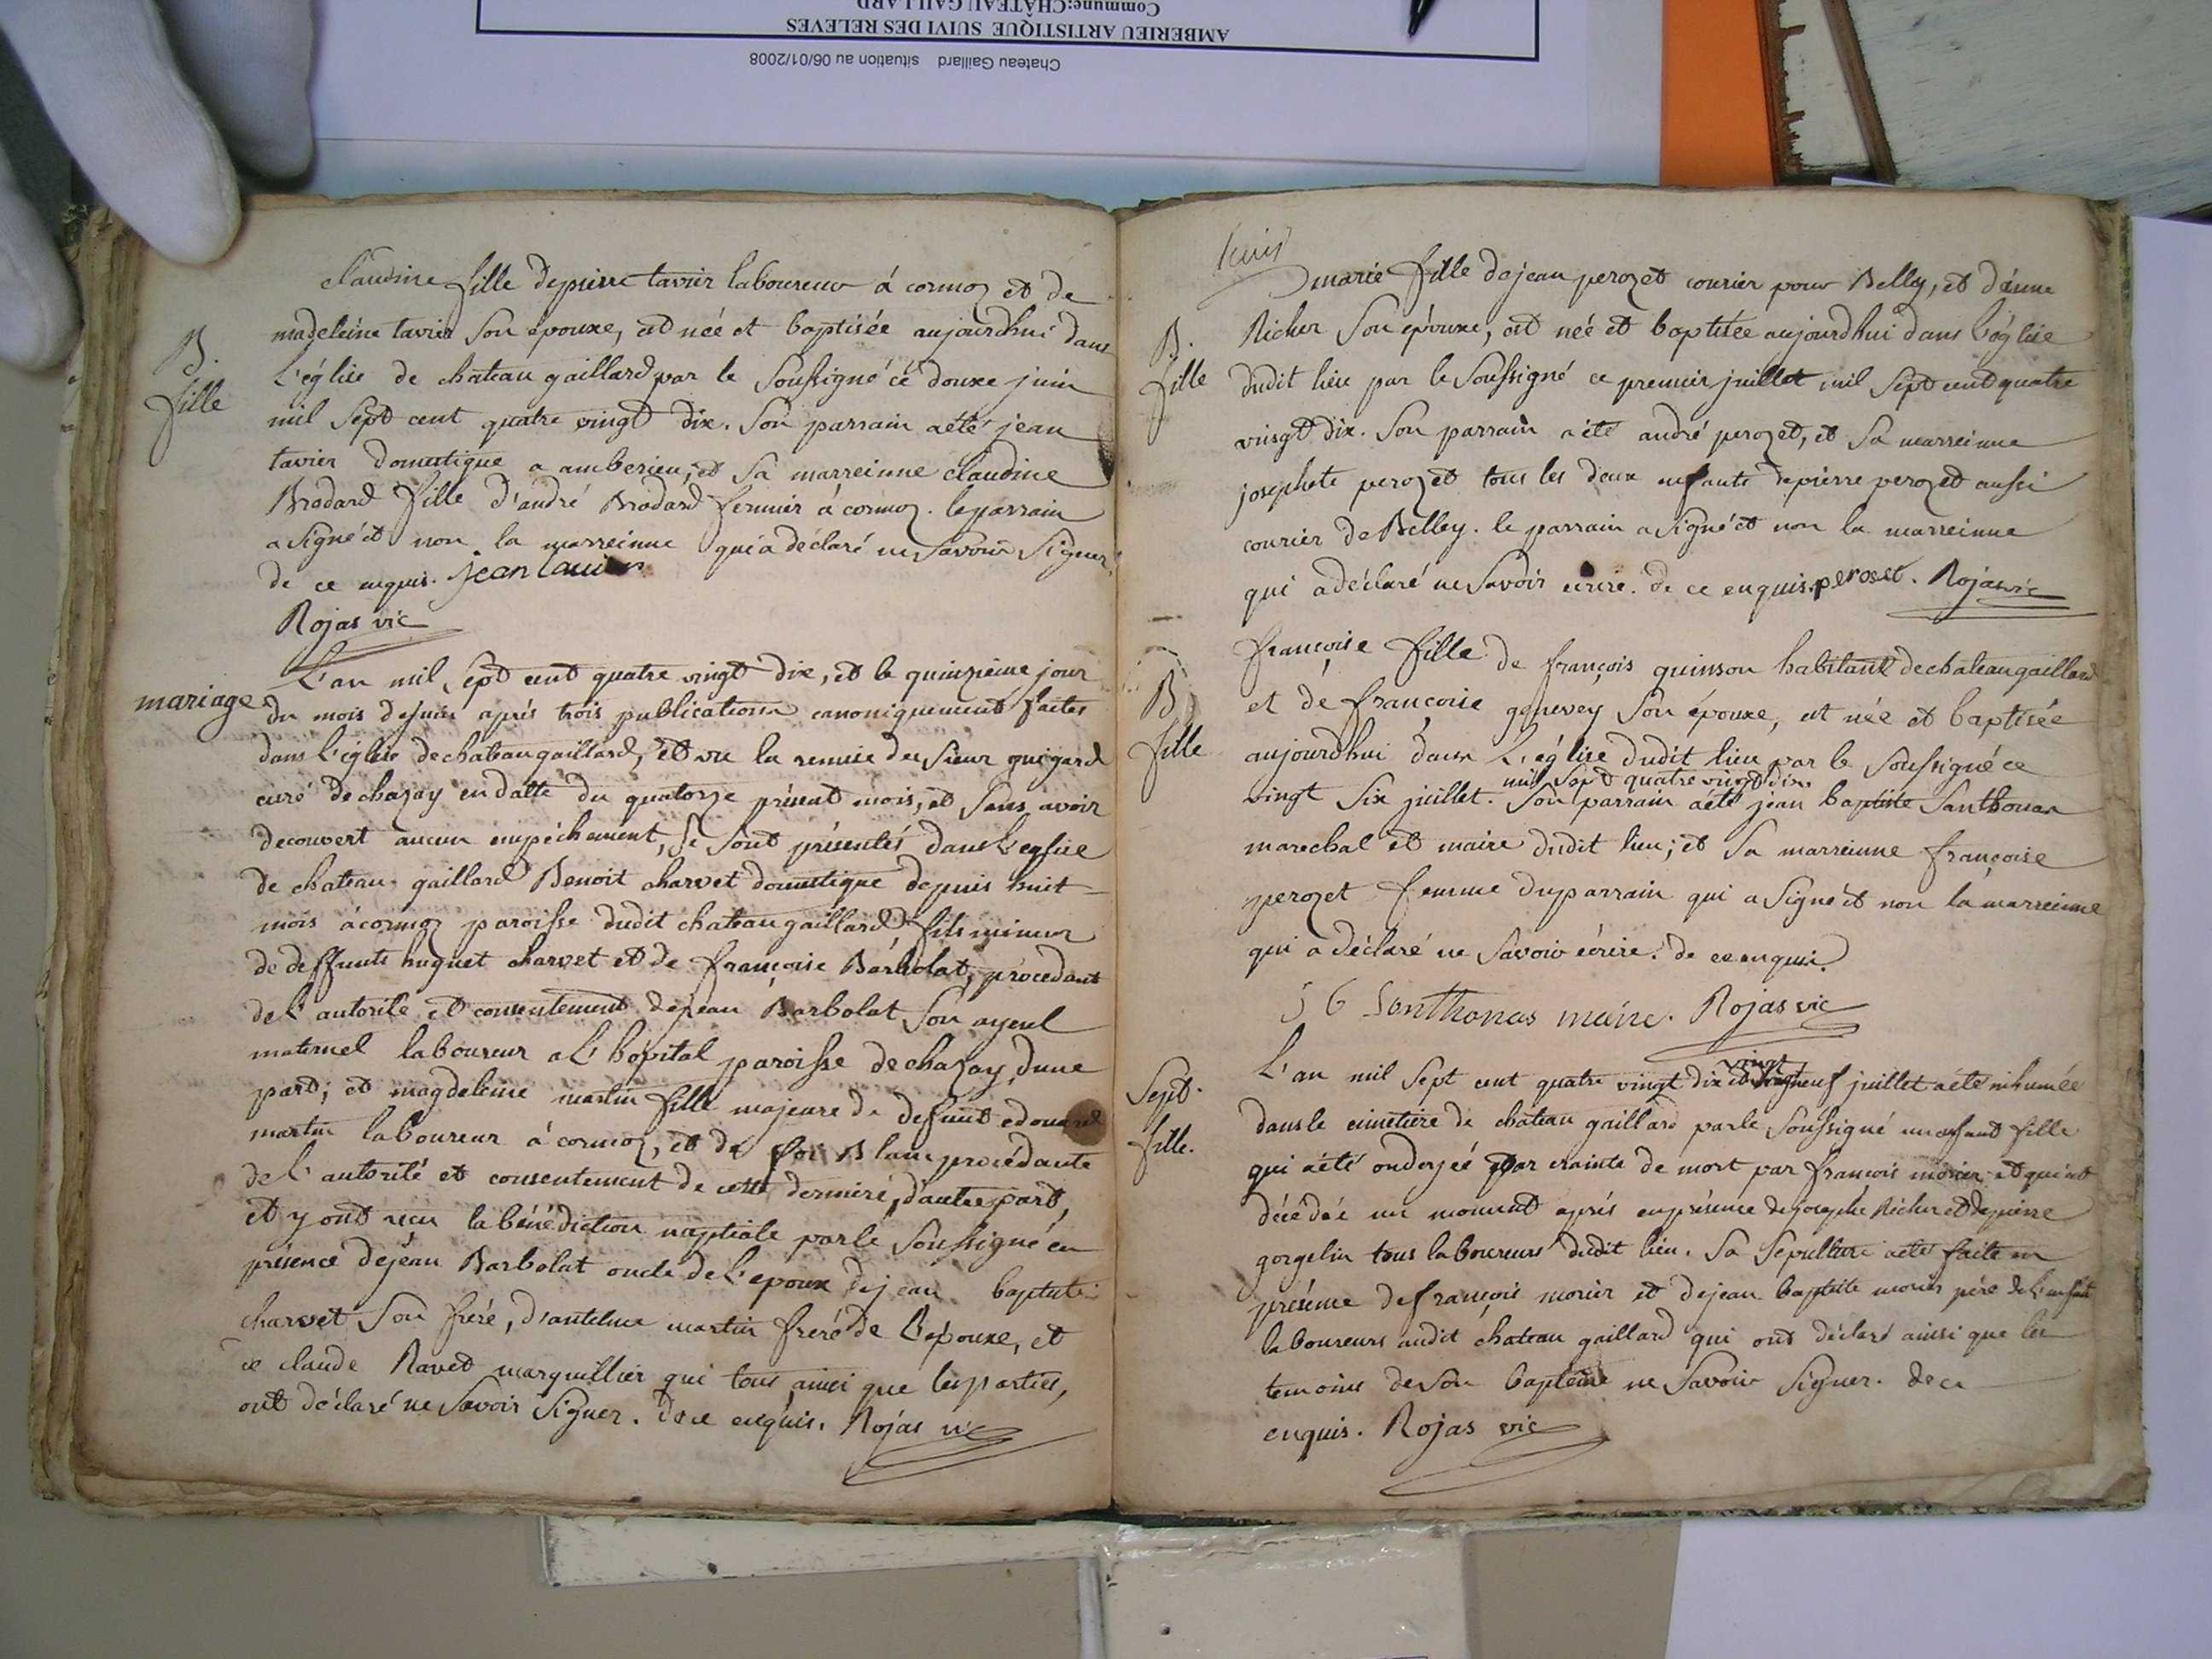 Commune:CHÂTEAU GAILLARD
AMBERIEU ARTISTIQUE SUIVI DES RELEVES
Chateau Gaillard situation au 06/01/2008
claudine fille de pierre tavier laboureur à cormoz et de
madeleine tavier Son épouse, est née et baptisée aujourdhui dans
B.
fille
L'église de chateau gaillard par le Soussigné cé douxe juin
mil Sept cent quatre vingt dix. Son parrain aeté jean
tavier domestique a amberieu, et Sa marreinne claudine
Brodard fille d'andré Brodard fermier à cormoz. le parrain
a Signé et non la marreinne qui a déclaré ne Savoir Signer,
de ce enquis. jean tavier
Rojas vic
mariage
L'an mil Sept cent quatre vingt dix, et le quinzieme jour
du mois de juin aprés trois publications canoniquement faites
dans L'église de chateaugaillard, et vu la remise du Sieur guigard
curé de chazay en datte du quatorze présent mois, et Sans avoir
decouvert aucun empêchement, Se Sont présentés dans L'eglise
de chateau gaillard Benoit charvet domestique depuis huit
mois à cormoz paroisse dudit chateaugaillard, fils mineur
de deffunts huguet charvet et de françoise Barbolat, procedant
de L'autorité et consentement de jean Barbolat Son ayeul
maternel laboureur a L'hopital paroisse de chazay dune
part; et magdeleine martin fille majeure de defunt edouard
martin laboureur à cormoz, et de Blanc procédante
de L'autorité et consentement de cette derniere, d'autre part,
et y ont reçu la bénédiction nuptiale par le Soussigné en
présence de jean Barbolat oncle de L'epoux, de jean baptiste
charvet Son frere, d'antelme martin frere de L'épouse, et
de claude Ravet marguillier qui tous ainsi que les parties,
ont déclaré ne Savoir Signer. de ce enquis. Rojas vic
marie fille de jean perozet courier pour Belley, et d'anne
B.
fille
Richer Son epouxe, est née et baptisée aujourdhui dans l'église
dudit lieu par le Soussigné ce premier juillet mil Sept cent quatre
vingt dix. Son parrain a été andré perozet, et Sa marreinne
josephete perozet tous les deux enfants de pierre perozet aussi
courier de Belley. le parrain a Signé et non la marreinne
qui a déclaré ne Savoir ecrire. de ce enquis. peroset. Rojas vic
B
fille
françoise fille de françois quinson habitant de chateaugaillard
et de françoise genevey Son épouse, est née et baptisée
aujourdhui dans L'église dudit lieu par le Soussigné ce
mil Sept quatre vingt dix
vingt Six juillet. Son parrain aeté jean baptiste Santhonax
marechal et maire dudit lieu; et Sa marreinne françoise
perozet femme du parrain qui a Signé et non la marreinne
qui a déclaré ne Savoir écrire. de ce enquis.
J B Santhonas maire. Rojas vic
Sept.
fille.
vingt
L'an mil Sept cent quatre vingt dix et neuf juillet aeté inhumée
dans le cimetiere de chateau gaillard par le Soussigné un enfant fille
qui aété ondoyeé par crainte de mort par françois morier et qui est
décédée un moment aprés en présence de joseph Richer et de pierre
gorgelin tous laboureurs dudit lieu. Sa Sepulture aeté faite en
présence de françois morier et de jean baptiste morier pére de L'enfant
laboureurs audit chateau gaillard qui ont déclaré ainsi que les
temoins de Son baptême ne Savoir Signer. de ce
enquis. Rojas vic